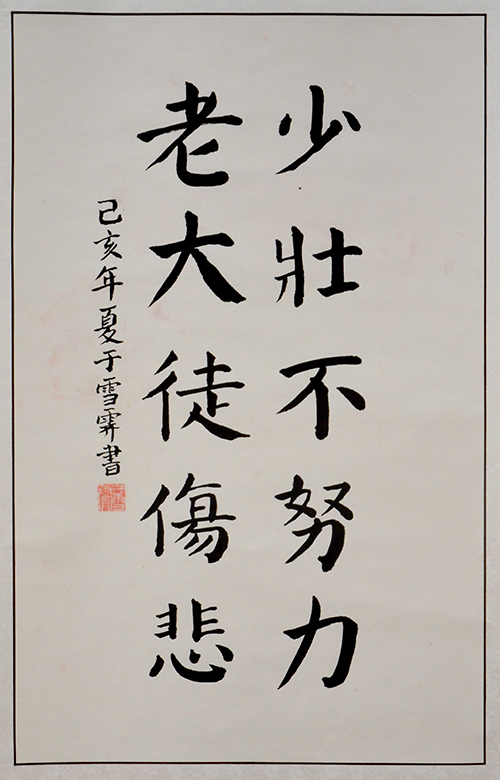 少壯不努力
老大徒傷悲
己亥年夏于雪霁書